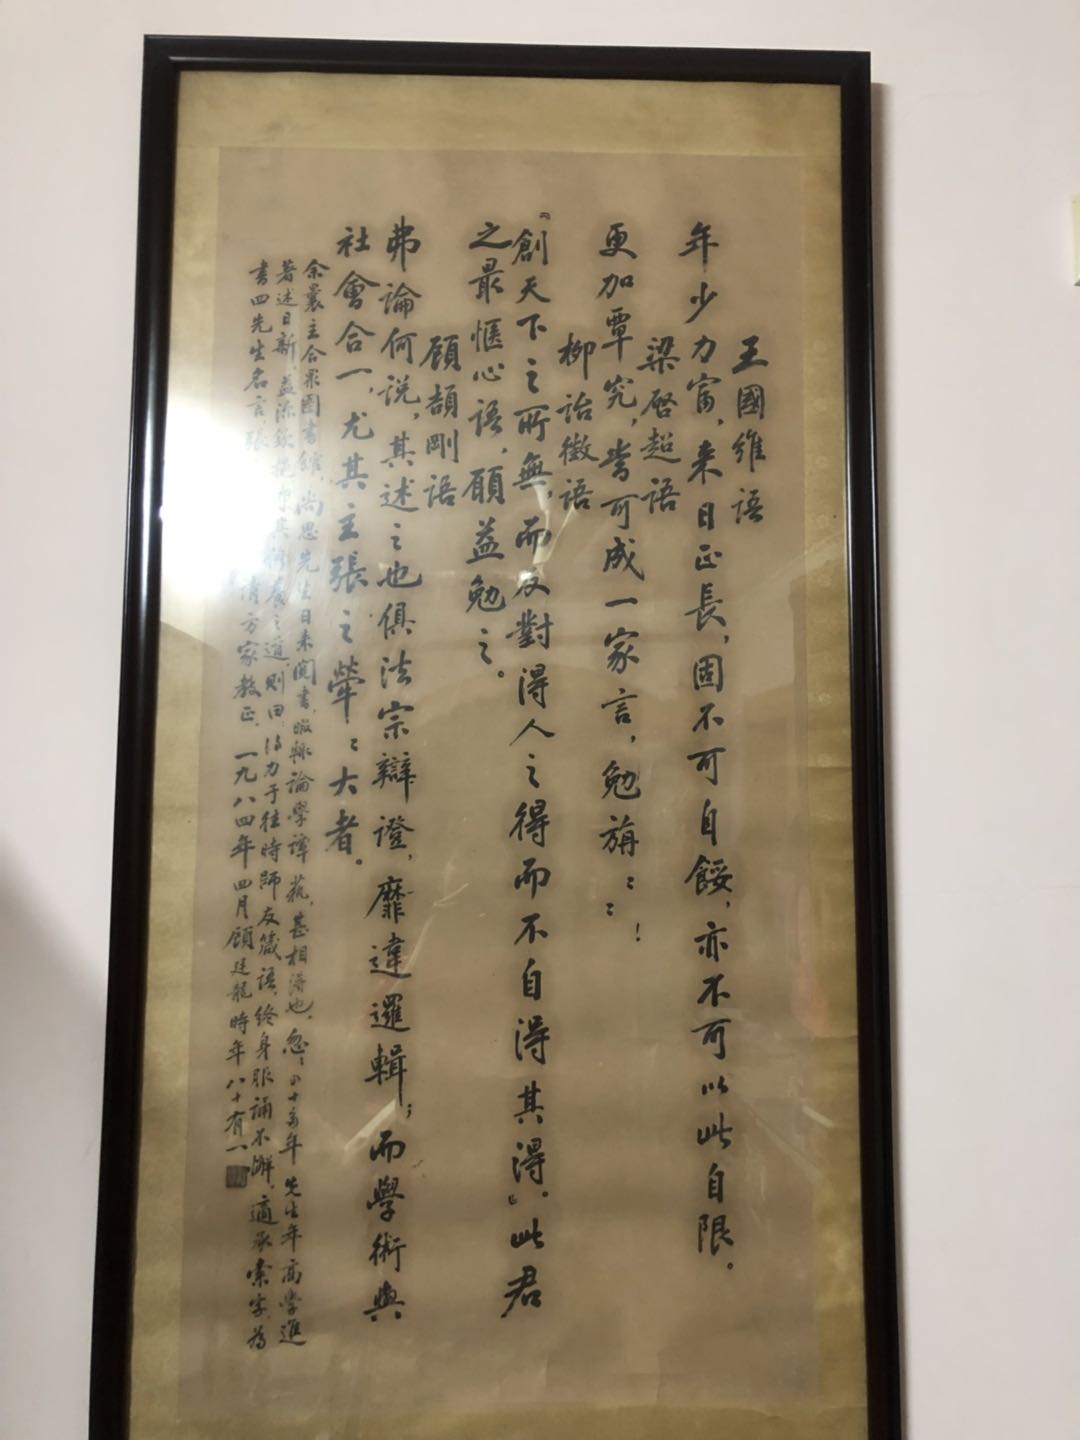 王國維語
年少力富，来日正長，固不可自餒，亦不可以此自限。
梁啓超語
更加覃究，当可成一家言，勉旃〻！
柳詒徵語
『創天下之所無，而反對得人之得而不自得其得』。此君
之最愜心語，願益勉之。
顧頡剛語
弗論何説，其述之也俱法宗辯證，靡違邏輯；而學術與
社會合一，尤其主張之犖〻大者。
余曩主合衆圖書館，尚思先生日来閲書，暇輒論學譚藝，甚相得也。忽〻四十多年，先生年高學進
著述日新，益深欽挹，其修養之道，則曰：得力于往時師友箴語，終身服誦不懈，適承索字，爲
書四先生名言 方家教正。一九八四年四月顧廷龍時年八十有一